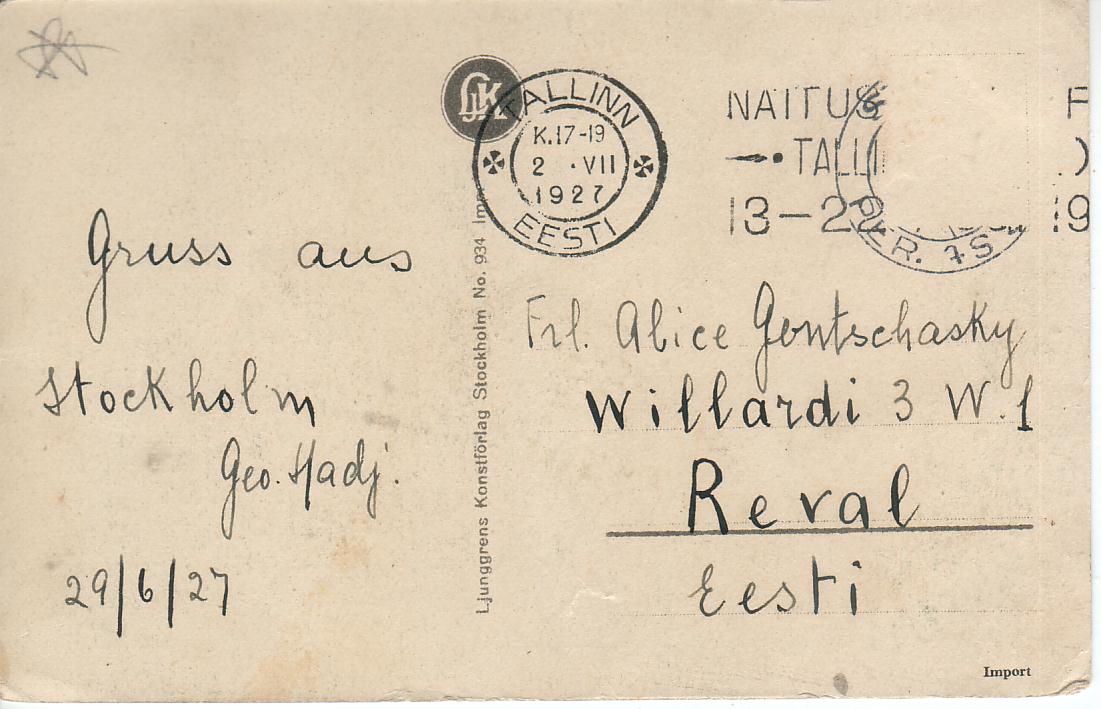 LJK
TALLINN
K.17-19
2 · VII
1927
EESTI
NÄITUS
TALLI
13-22 19
PER. 7 S
Gruss aus
Stockholm
Geo. Hadj.
29/6/27
Ljunggrens Konstförlag Stockholm No. 934
Frl. Alice Gontschasky
Willardi 3 W. 1
Reval
Eesti
Import